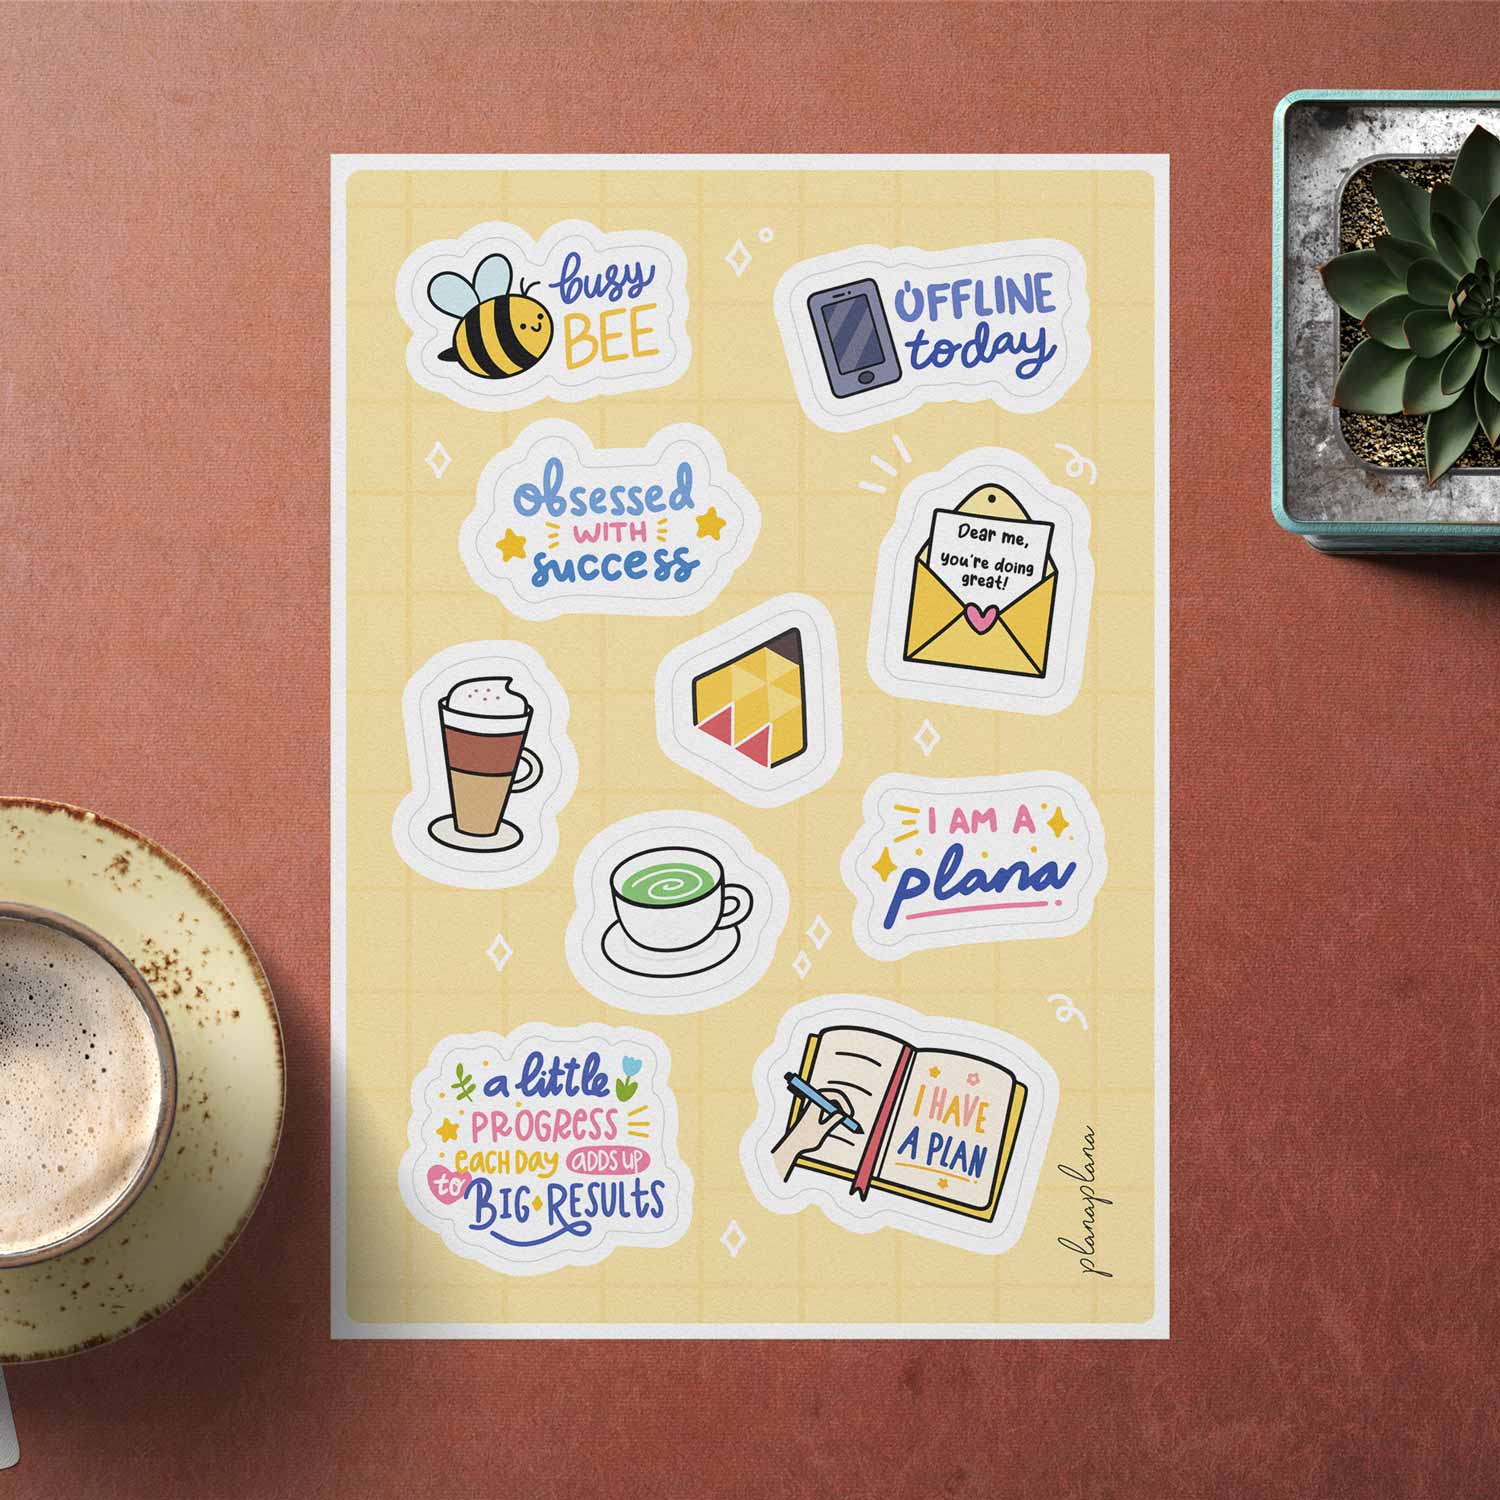 busy
BEE
OFFLINE
today
obsessed
WITH
success
Dear me,
you're doing
great!
I AM A
plana
a little
PROGRESS
EACH DAY ADDS UP
to BIG RESULTS
I HAVE
A PLAN
planaplana